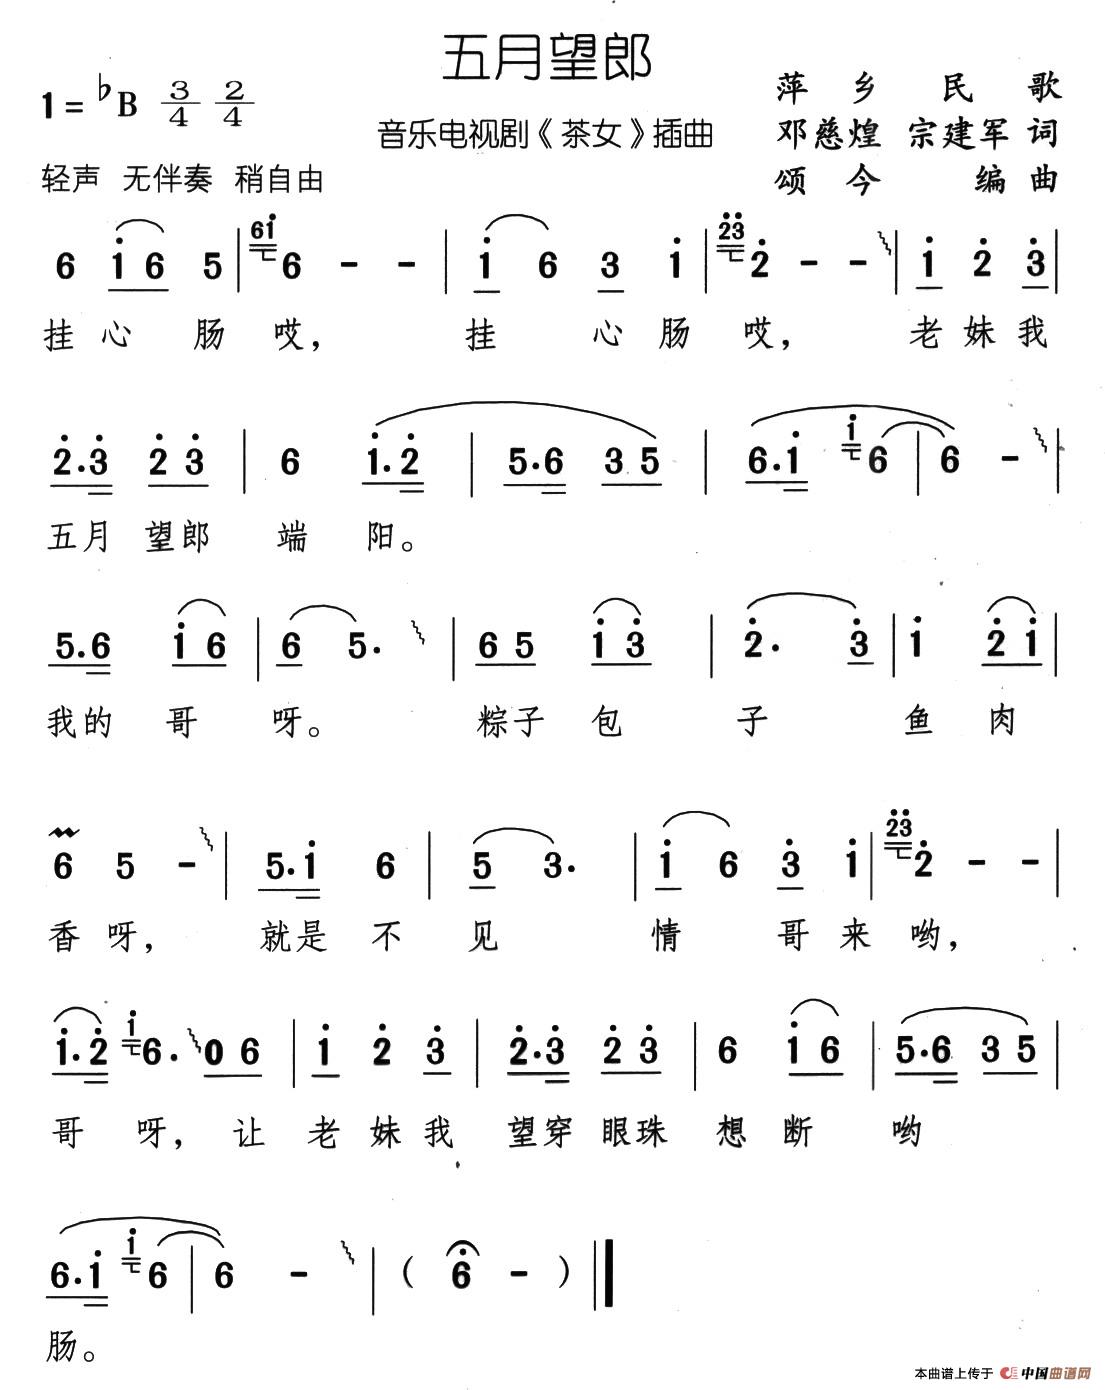 五月望郎
1=♭B 3/4 2/4
萍乡民歌
音乐电视剧《茶女》插曲
邓慈煌 宗建军 词
轻声 无伴奏 稍自由
颂今 编曲
6 i 6 5 | 61 6 - - | i 6 3 i | 23 2 - - | i 2 3 |
挂心肠哎，挂心肠哎，老妹我
2.3 2 3 | 6 1.2 | 5.6 3 5 | 6.i i 6 | 6 - |
五月望郎端阳。
5.6 i 6 | 6 5. | 6 5 i 3 | 2. 3 | i 2 i |
我的哥呀。粽子包子鱼肉
6 5 - | 5.i 6 | 5 3. | i 6 3 i | 23 2 - - |
香呀，就是不见情哥来哟，
i.2 i 6. 0 6 | i 2 3 | 2.3 2 3 | 6 i 6 | 5.6 3 5 |
哥呀，让老妹我望穿眼珠想断哟
6.i i 6 | 6 - | ( 6 - ) ‖
肠。
本曲谱上传于 中国曲谱网